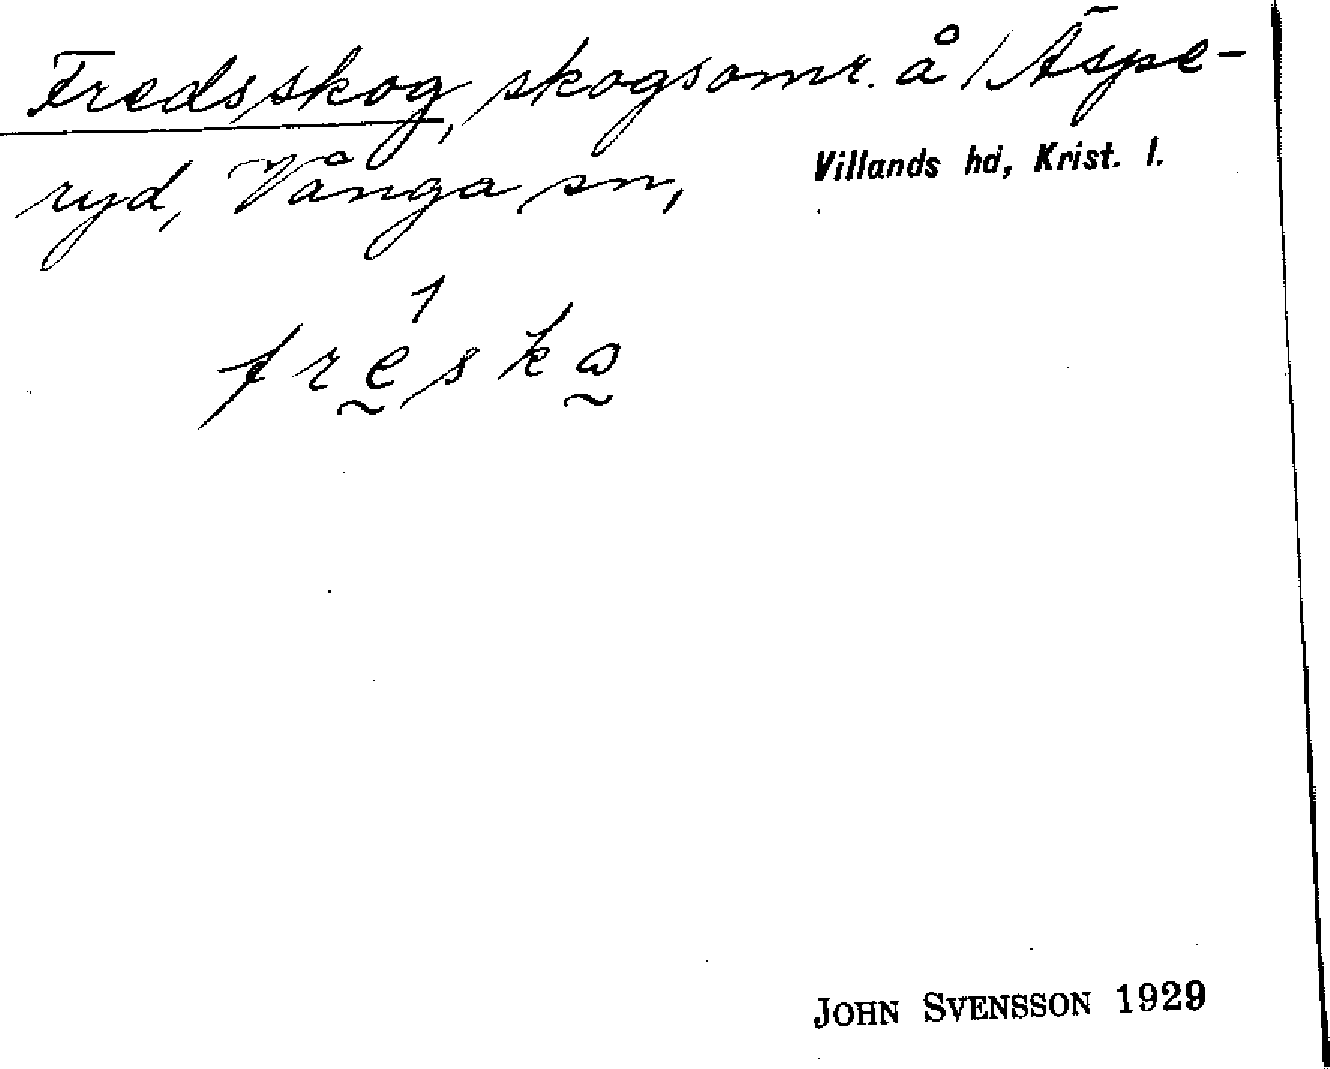 Fredsskog, skogsomr. å / Äspe-
ryd, Vånga sn,
Villands hd, Krist. l.
JOHN SVENSSON 1929